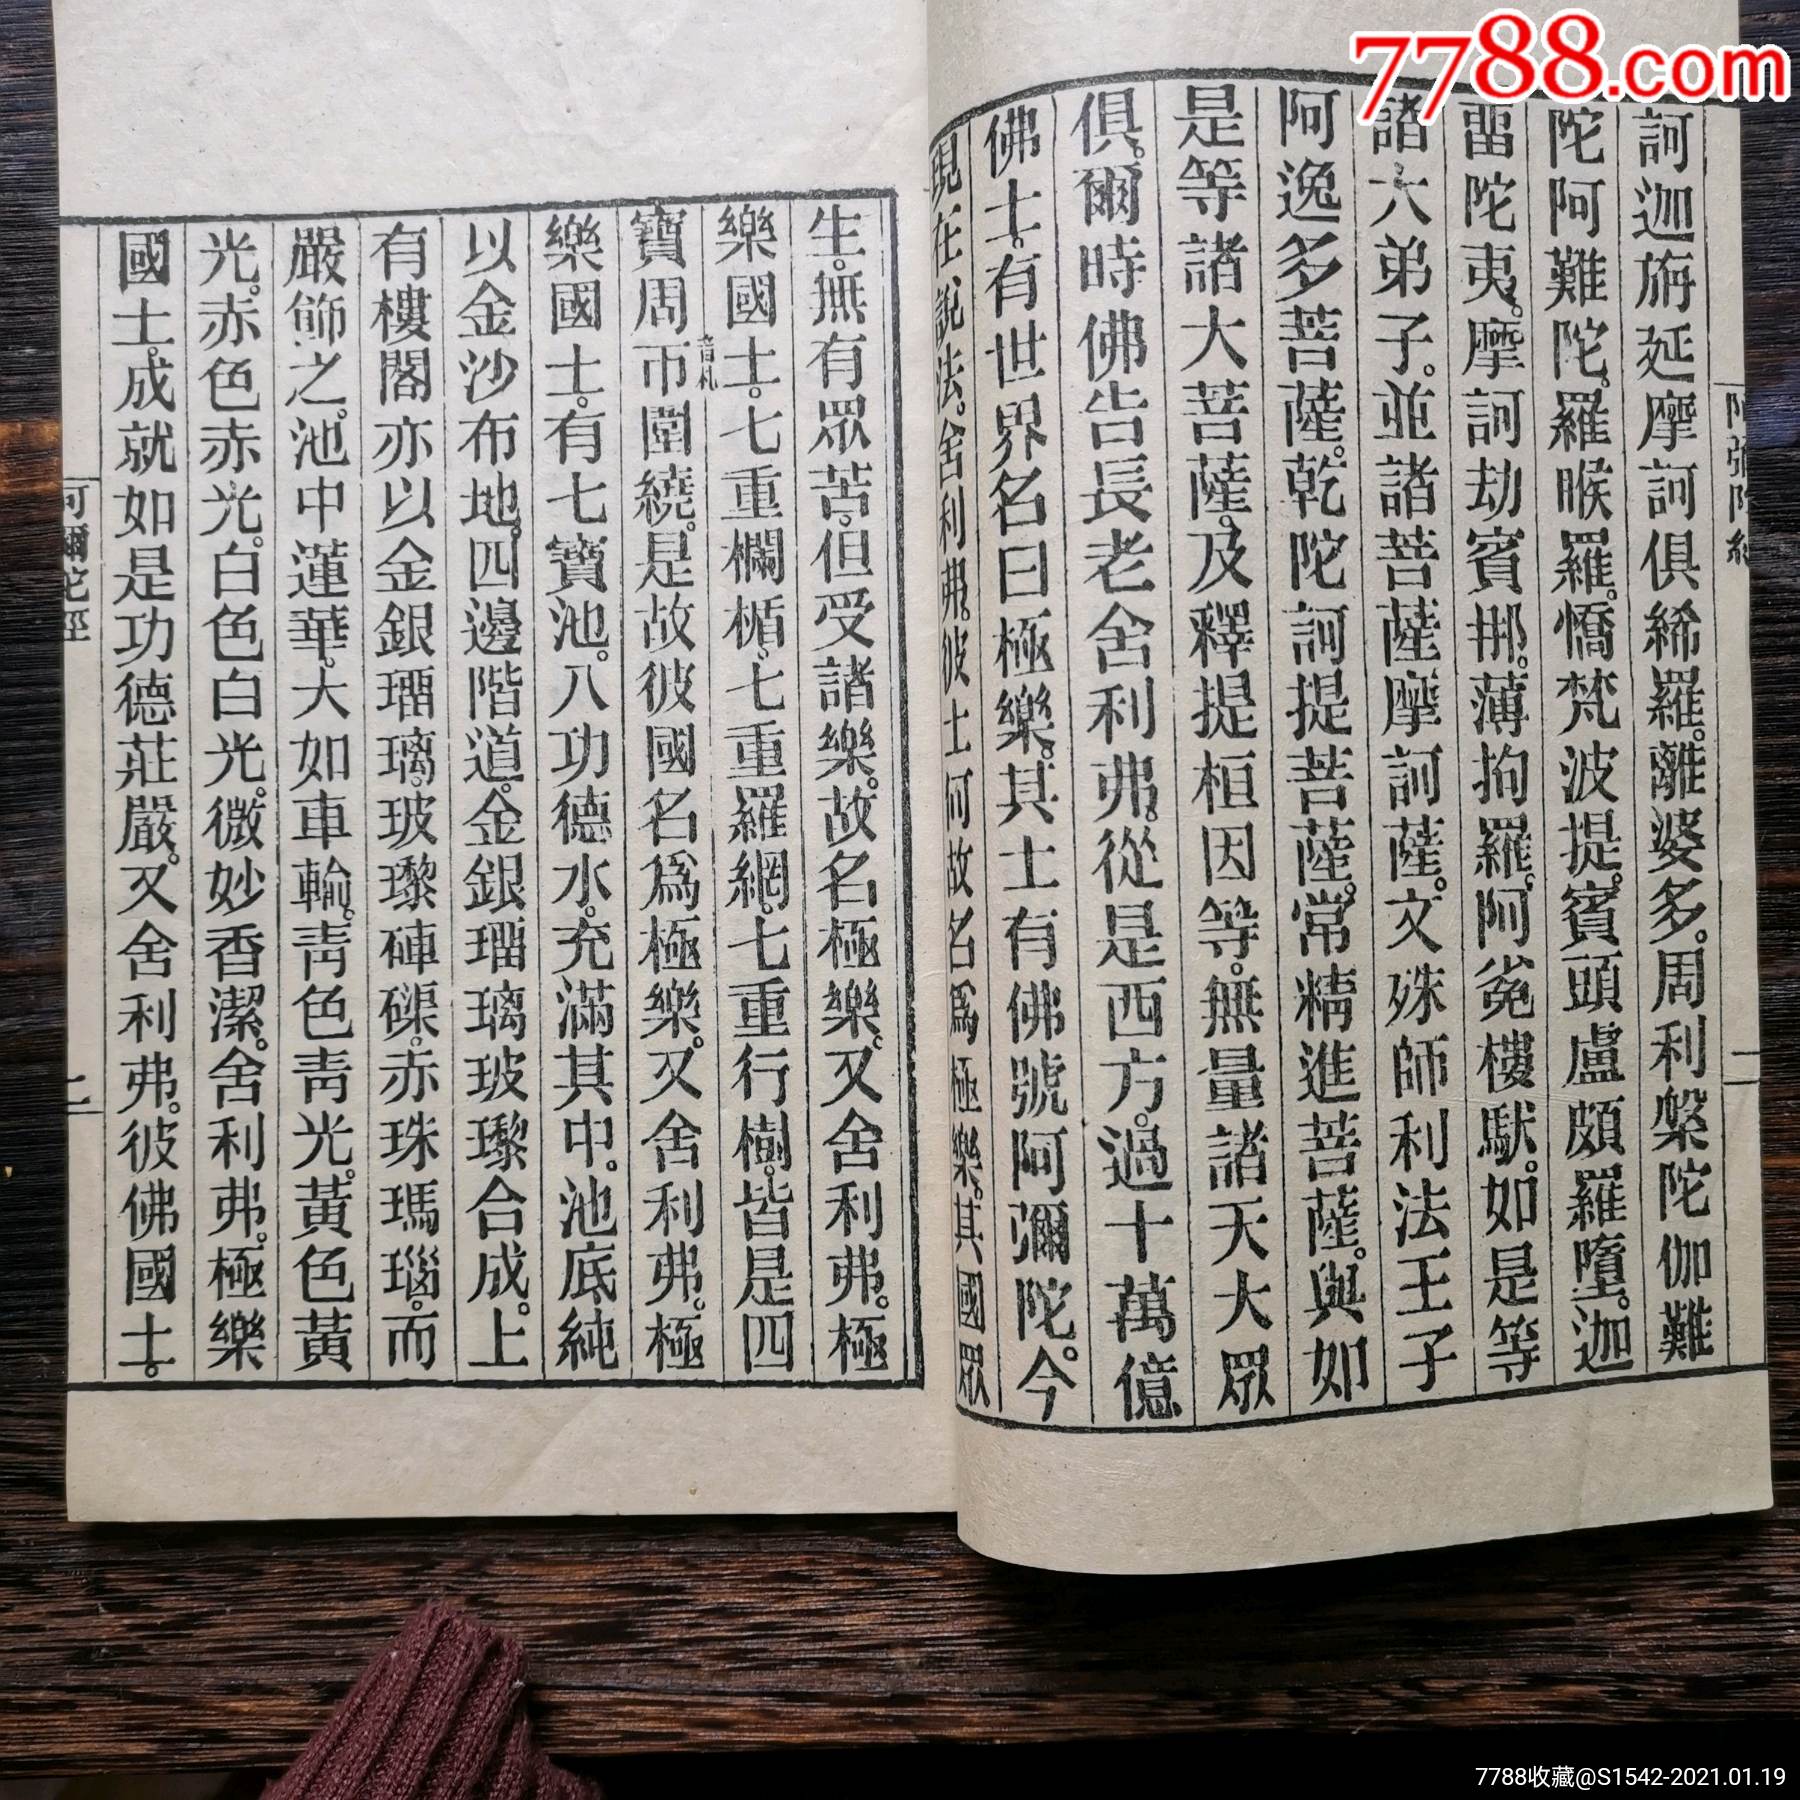 7788.com
訶迦旃延摩訶俱絺羅。離婆多。周利槃陀伽難
陀阿難陀。羅睺羅。憍梵波提。賓頭盧頗羅墮。迦
畱陀夷。摩訶劫賓那。薄拘羅。阿㝹樓馱。如是等
諸大弟子。並諸菩薩摩訶薩。文殊師利法王子
阿逸多菩薩。乾陀訶提菩薩。常精進菩薩。與如
是等諸大菩薩。及釋提桓因等。無量諸天大眾
俱。爾時佛告長老舍利弗。從是西方。過十萬億
佛土。有世界名曰極樂。其土有佛號阿彌陀。今
現在說法。舍利弗。彼土何故名為極樂。其國眾
生。無有眾苦。但受諸樂。故名極樂。又舍利弗。極
樂國土。七重欄楯。七重羅網。七重行樹。皆是四
寶周帀音札圍繞。是故彼國名為極樂。又舍利弗。極
樂國土。有七寶池。八功德水。充滿其中。池底純
以金沙布地。四邊階道。金銀瑠璃玻瓈合成。上
有樓閣亦以金銀瑠璃。玻瓈硨磲。赤珠瑪瑙。而
嚴飾之。池中蓮華。大如車輪。青色青光。黃色黃
光。赤色赤光。白色白光。微妙香潔。舍利弗。極樂
國土。成就如是功德莊嚴。又舍利弗。彼佛國土。
阿彌陀經
7788收藏@S1542-2021.01.19